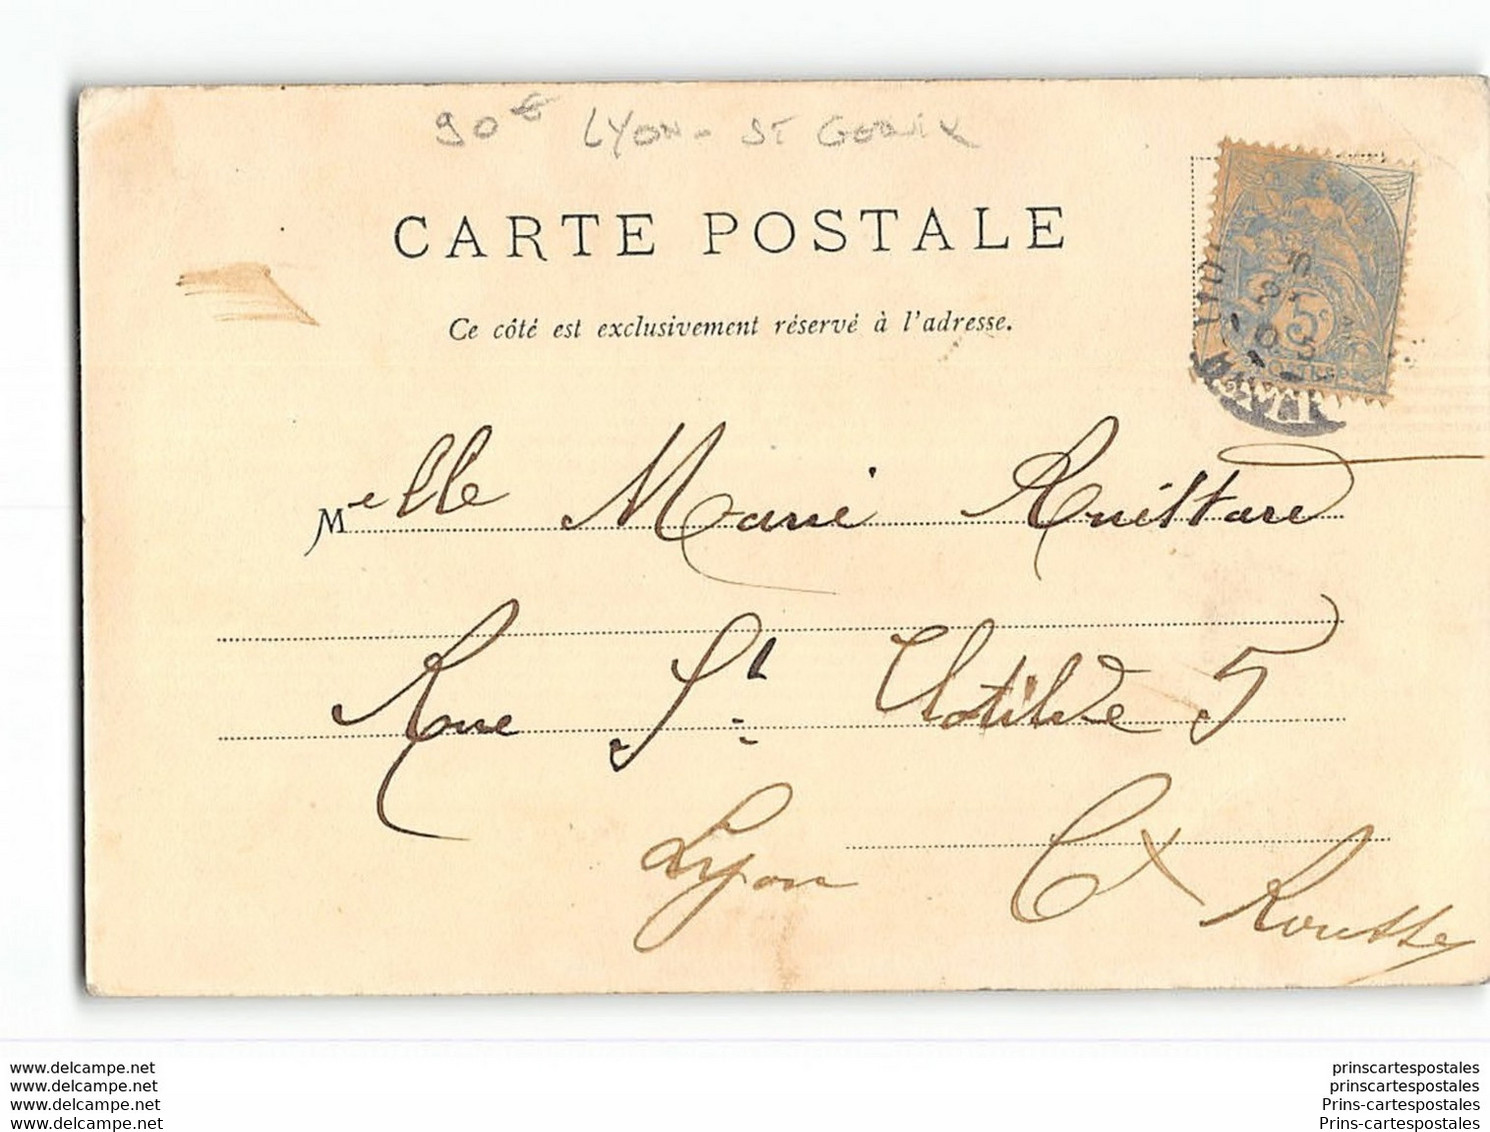 90€ LYON - ST
CARTE POSTALE
Ce côté est exclusivement réservé à l'adresse.
5c
Melle Marie
Rue St Clotilde 5
Lyon Cx Rousse
www.delcampe.net
www.delcampe.net
www.delcampe.net
www.delcampe.net
prinscartespostales
prinscartespostales
Prins-cartespostales
Prins-cartespostales